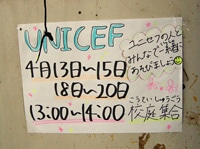 UNICEF
ユニセフの人と
みんなで一緒に
あそびましょう
4月13日~15日
18日~20日
13:00~14:00
こうていしゅうごう
校庭集合